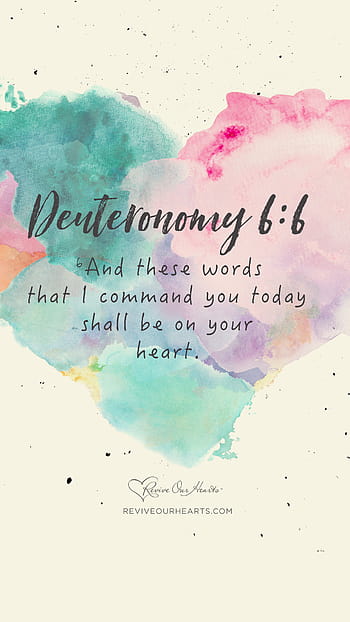 Deuteronomy 6:6
⁶And these words
that I command you today
shall be on your
heart.
Revive Our Hearts™
REVIVEOURHEARTS.COM